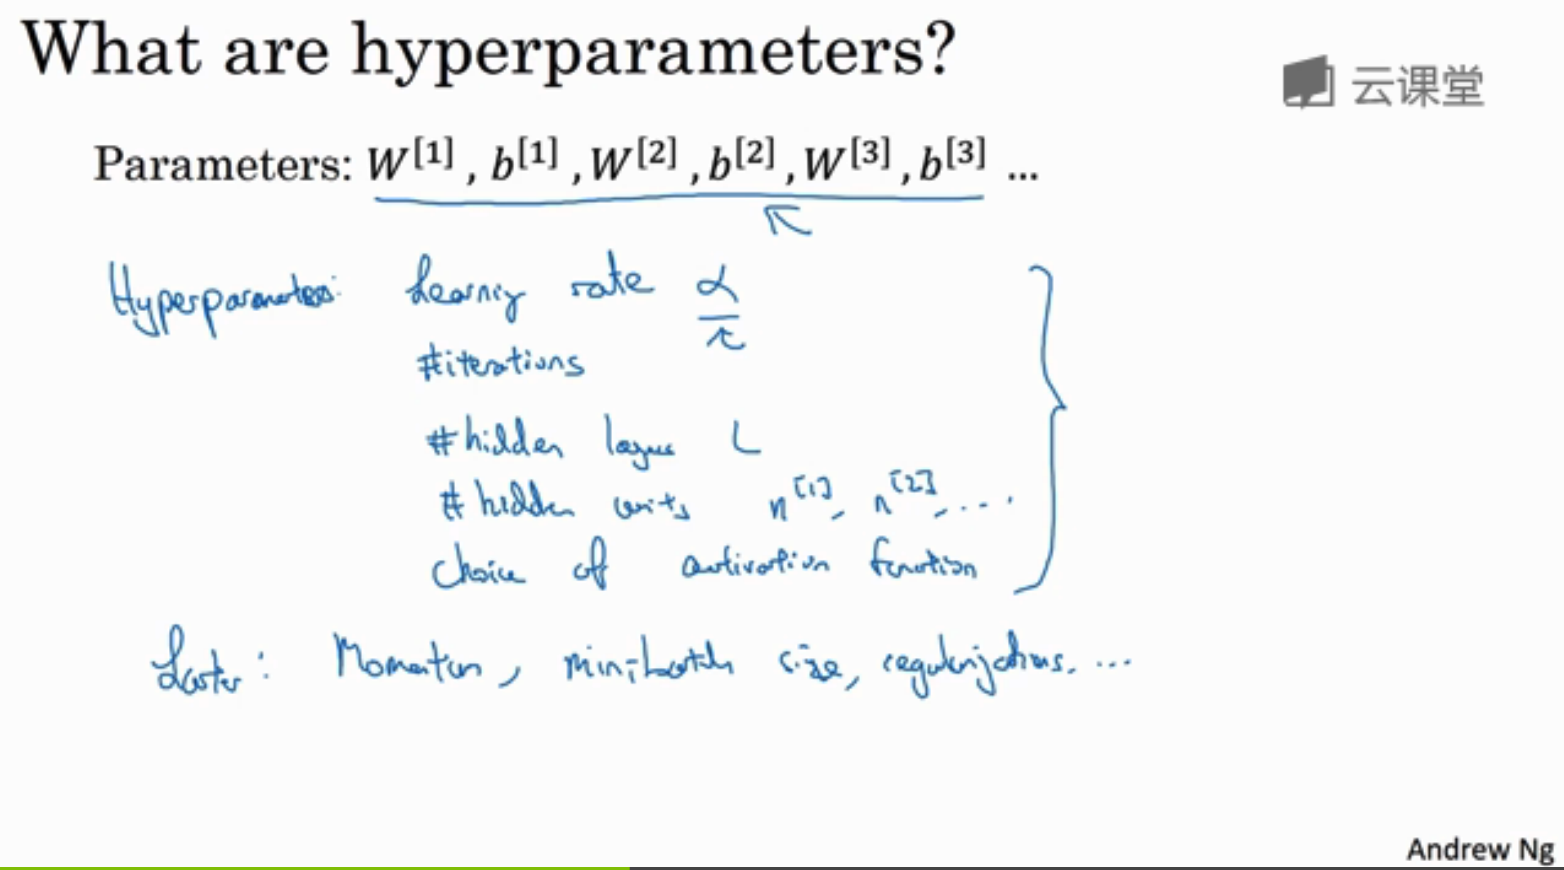 What are hyperparameters?
云课堂
Parameters: W^[1], b^[1], W^[2], b^[2], W^[3], b^[3] ...
Hyperparameters: Learning rate α
#iterations
#hidden layers L
# hidden units n^[1], n^[2], ....
Choice of activation function
Later: Momentum, mini-batch size, regularizations, ...
Andrew Ng